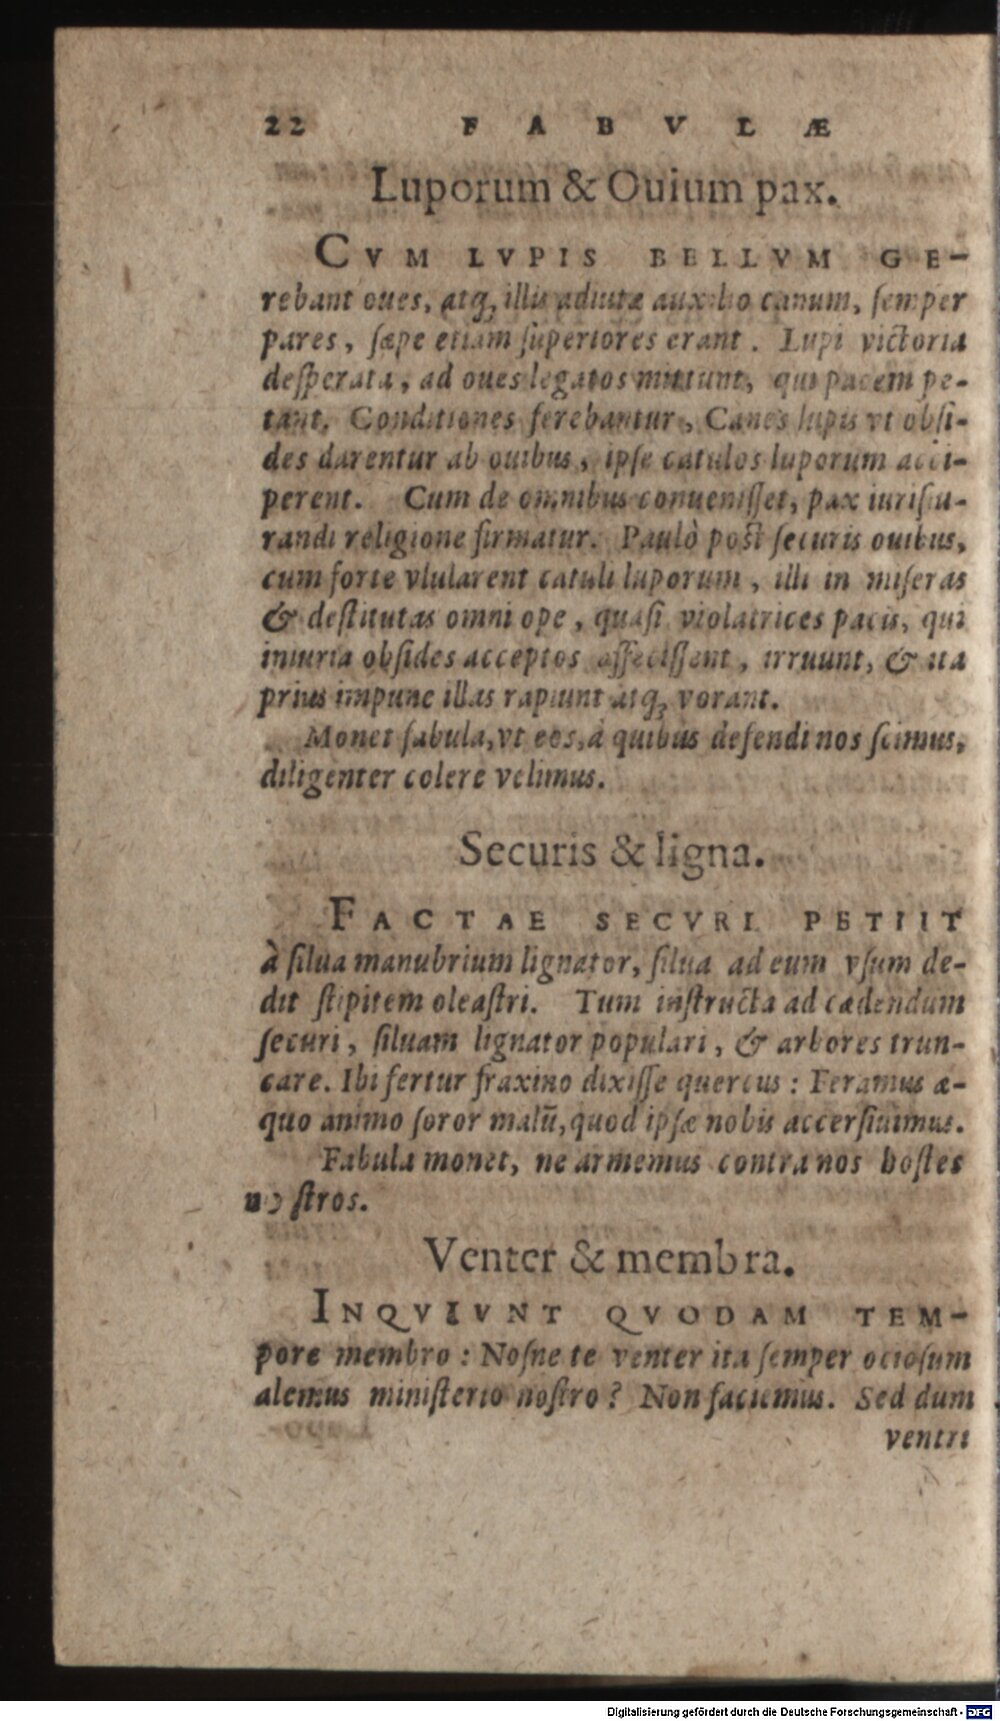 22 FABVLÆ
Luporum & Ouium pax.
CVM LVPIS BELLVM GE-
rebant oues, atq; illis adiutæ auxilio canum, semper
pares, sæpe etiam superiores erant. Lupi victoria
desperata, ad oues legatos mittunt, qui pacem pe-
tant. Conditiones ferebantur, Canes lupis vt obsi-
des darentur ab ouibus, ipse catulos luporum acci-
perent. Cum de omnibus conuenisset, pax iurisiu-
randi religione firmatur. Paulò post securis ouibus,
cum forte vlularent catuli luporum, illi in miseras
& destitutas omni ope, quasi violatrices pacis, qui
iniuria obsides acceptos affecissent, irruunt, & ita
prius impune illas rapiunt atq; vorant.
Monet fabula, vt eos, à quibus defendi nos scimus,
diligenter colere velimus.
Securis & ligna.
FACTAE SECVRI PETIIT
à silua manubrium lignator, silua ad eum vsum de-
dit stipitem oleastri. Tum instructa ad cædendum
securi, siluam lignator populari, & arbores trun-
care. Ibi fertur fraxino dixisse quercus: Feramus æ-
quo animo soror malū, quod ipsæ nobis accersiuimus.
Fabula monet, ne armemus contra nos hostes
nostros.
Venter & membra.
INQVIVNT QVODAM TEM-
pore membro: Nosne te venter ita semper ociosum
alemus ministerio nostro? Non faciemus. Sed dum
ventri
Digitalisierung gefördert durch die Deutsche Forschungsgemeinschaft - DFG